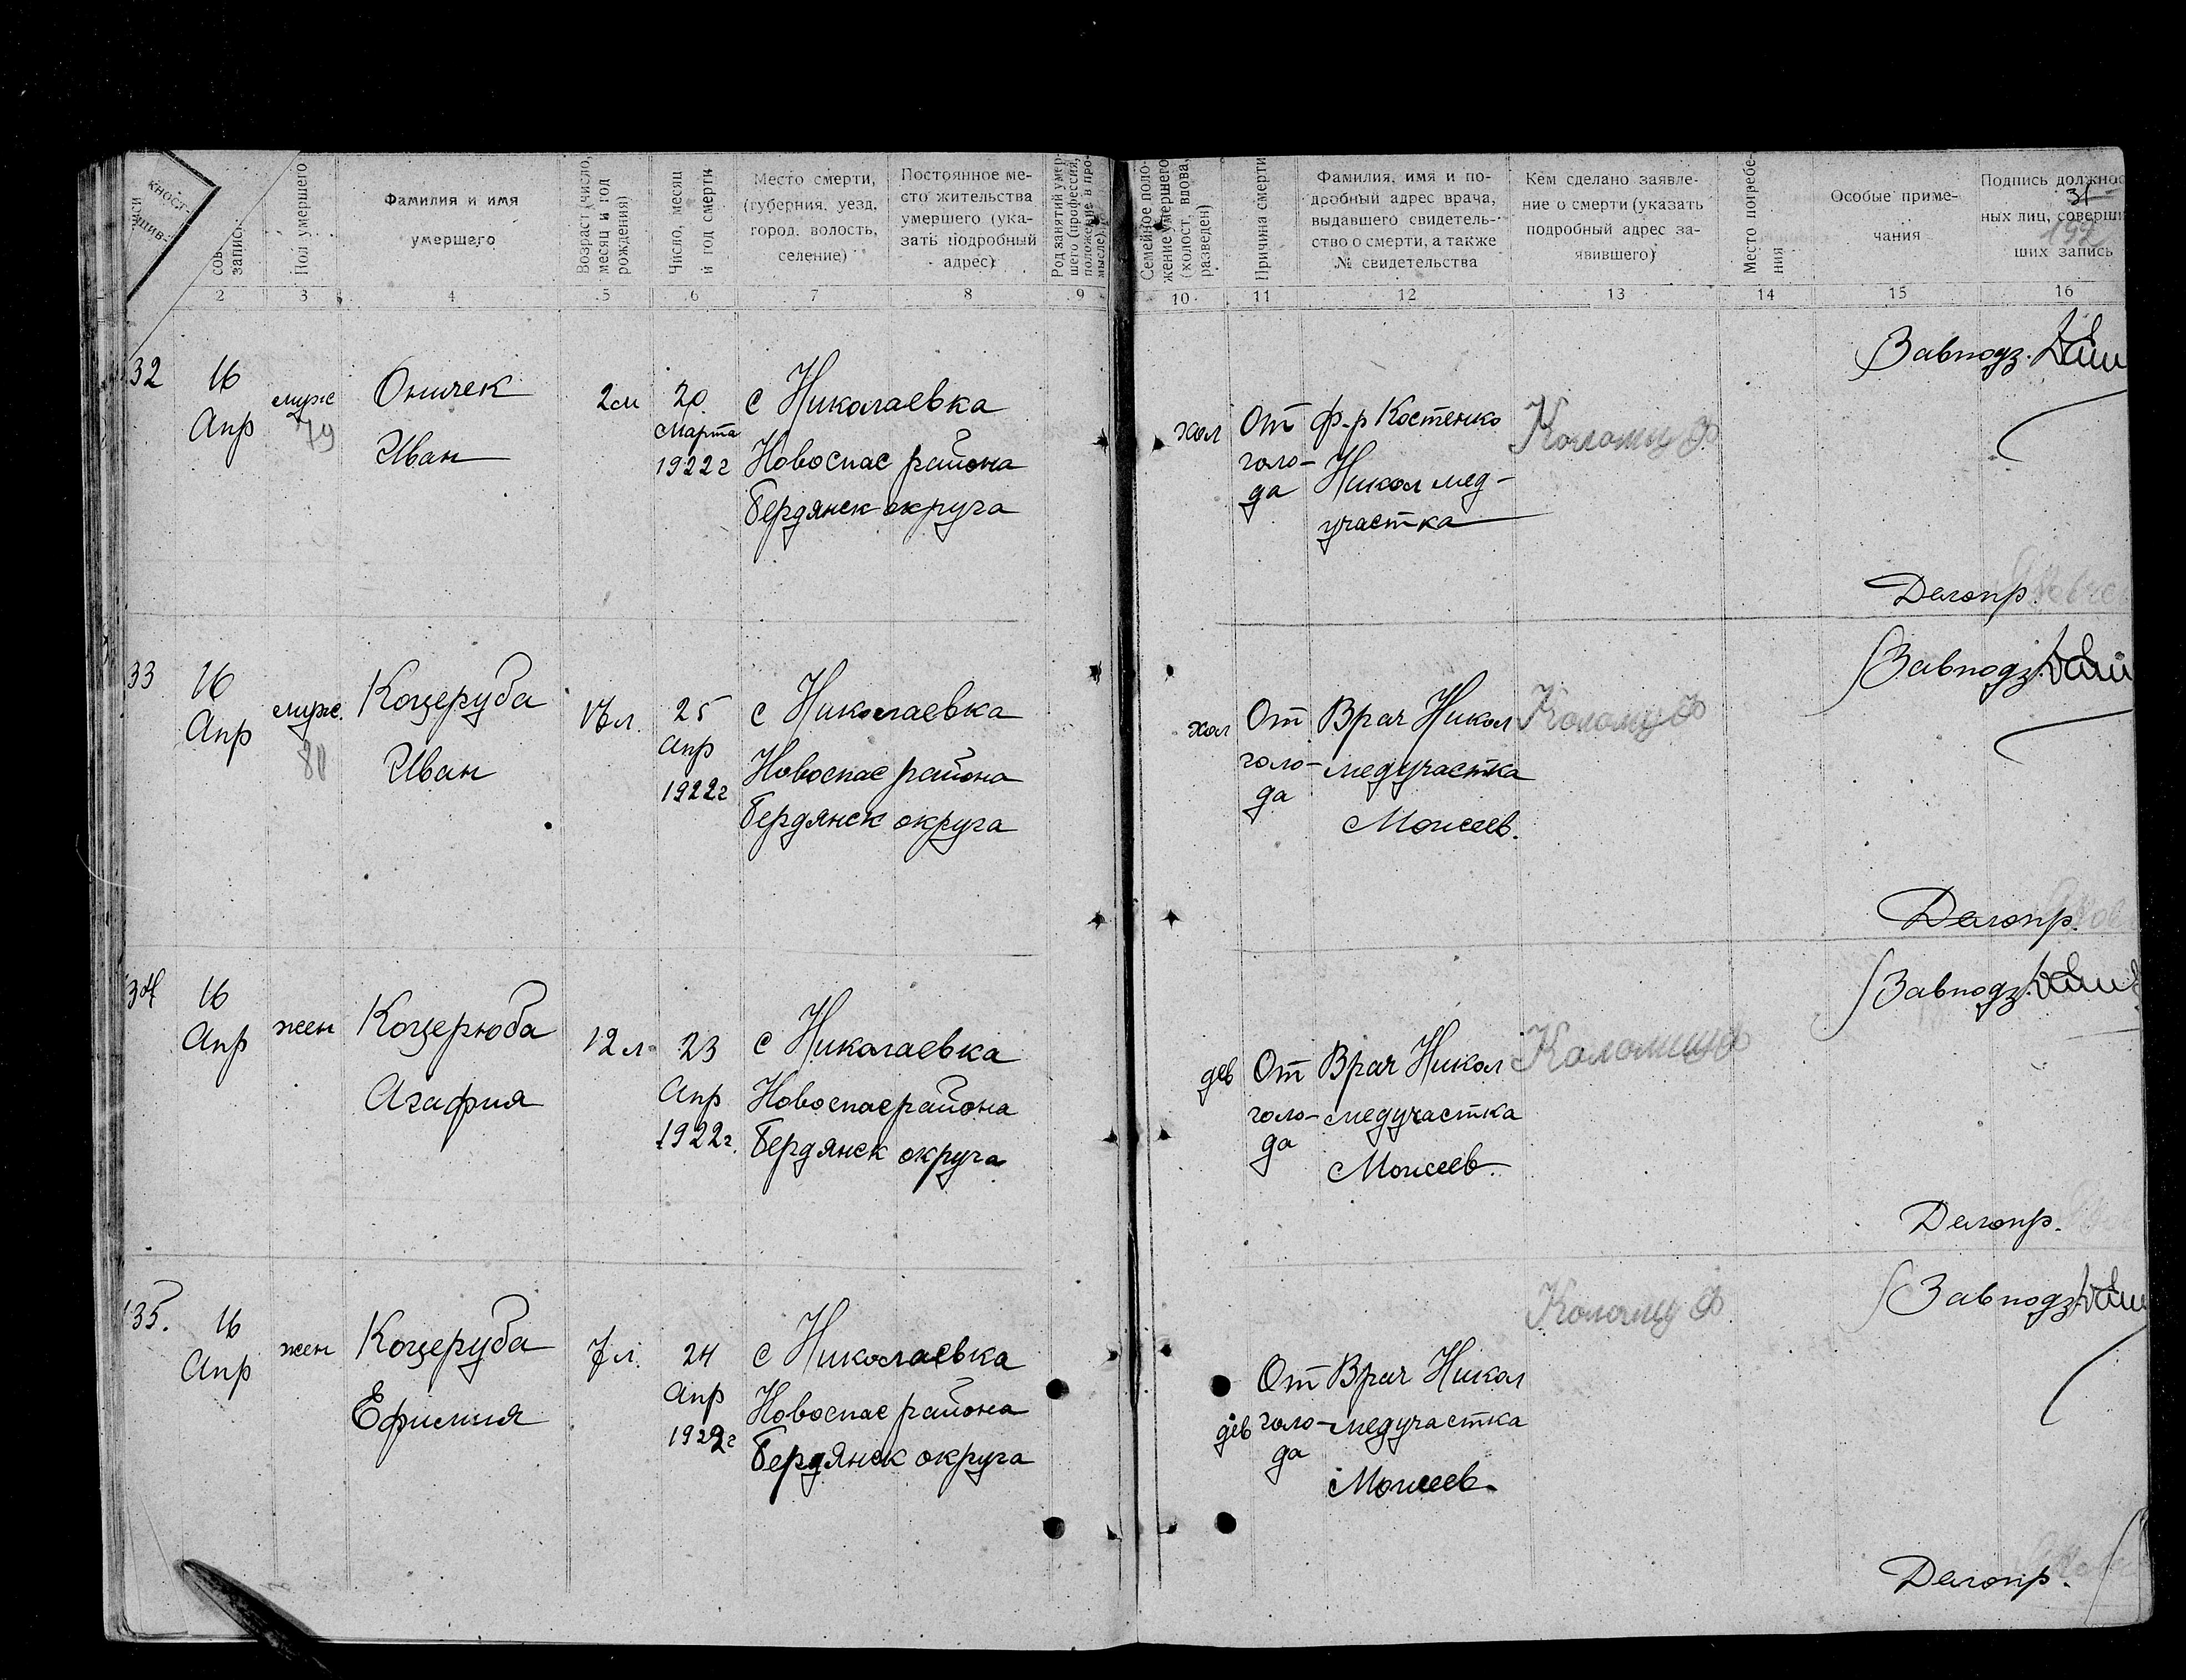 Пол умершего
Фамилия и имя
умершего
Возраст (число,
месяц и год
рождения)
Число, месяц
и год смерти
Место смерти,
(губерния, уезд,
город, волость,
селение)
Постоянное ме-
сто жительства
умершего (ука-
зать подробный
адрес)
Род занятий умер-
шего (профессия,
положение в про-
мысле)
Семейное поло-
жение умершего
(холост, вдова,
разведен)
Причина смерти
Фамилия, имя и по-
дробный адрес врача,
выдавшего свидетель-
ство о смерти, а также
№ свидетельства
Кем сделано заявле-
ние о смерти (указать
подробный адрес за-
явившего)
Место погребе-
ния
Особые приме-
чания
Подпись должнос
31
ных лиц, соверши
ших запись
2 3 4 5 6 7 8 9 10 11 12 13 14 15 16
32
16
Апр
муж
79
Оничек
Иван
2м
20
Марта
1922г
с Николаевка
Новоспас района
Бердянск округа
хол
От
голо-
да
ф-р Костенко
Никол мед-
участка
Завподз.
Делопр.
33
16
Апр
муж.
80
Коцеруба
Иван
25
Апр
1922г
с Николаевка
Новоспас района
Бердянск округа
хол
От
голо-
да
Врач Никол
медучастка
Моисеев.
Завподз.
Делопр.
34
16
Апр
жен
Коцерюба
Агафия
12л
23
Апр
1922г.
с Николаевка
Новоспас района
Бердянск округа
дев
От
голо-
да
Врач Никол
медучастка
Моисеев.
Завподз.
Делопр.
35.
16
Апр
жен
Коцеруба
Ефимия
7л.
24
Апр
1922г
с Николаевка
Новоспас района
Бердянск округа
дев
От
голо-
да
Врач Никол
медучастка
Моисеев.
Завподз.
Делопр.